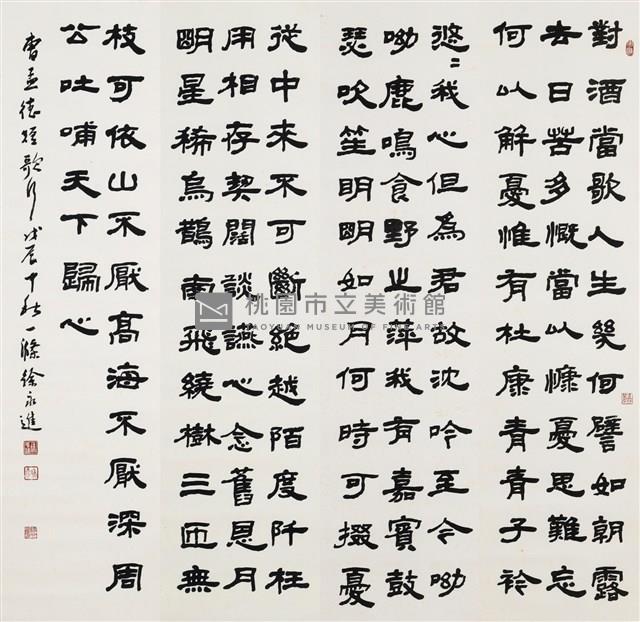 對酒當歌人生幾何譬如朝露
去日苦多慨當以慷憂思難忘
何以解憂惟有杜康青青子衿
悠〻我心但為君故沈吟至今呦
呦鹿鳴食野之萍我有嘉賓鼓
瑟吹笙明明如月何時可掇憂
從中來不可斷絕越陌度阡枉
用相存契闊談讌心念舊恩月
明星稀烏鵲南飛繞樹三匝無
枝可依山不厭高海不厭深周
公吐哺天下歸心
曹孟德短歌行戊辰中秋一滌徐永進
桃園市立美術館
TAOYUAN MUSEUM OF FINE ARTS